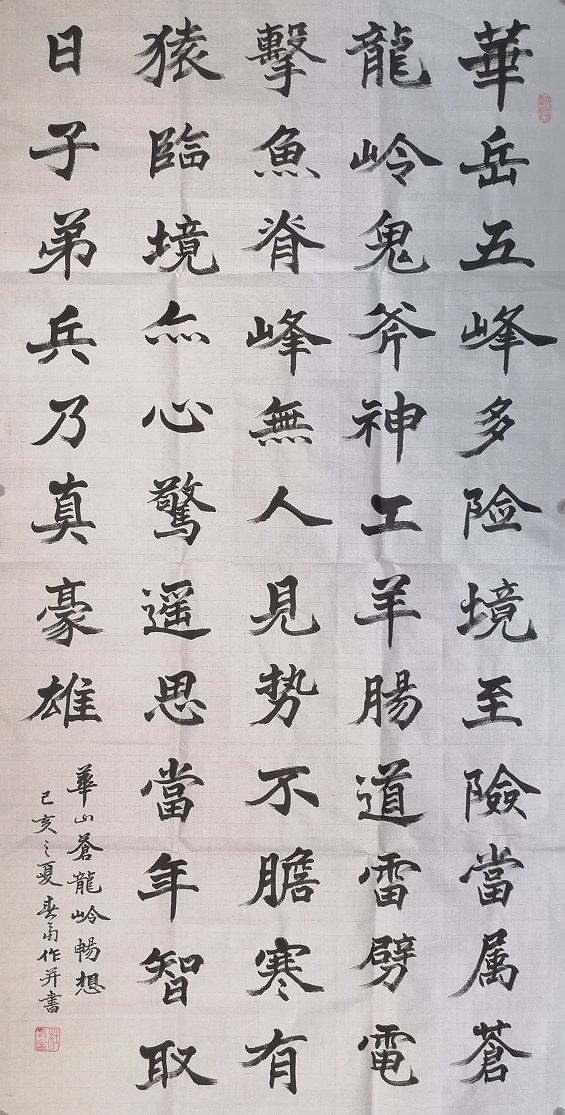 華岳五峰多险境至險當属蒼
龍岭鬼斧神工羊腸道雷劈電
擊魚脊峰無人見势不膽寒有
猿臨境亦心驚遥思當年智取
日子弟兵乃真豪雄
華山蒼龍岭暢想
己亥之夏 作并書